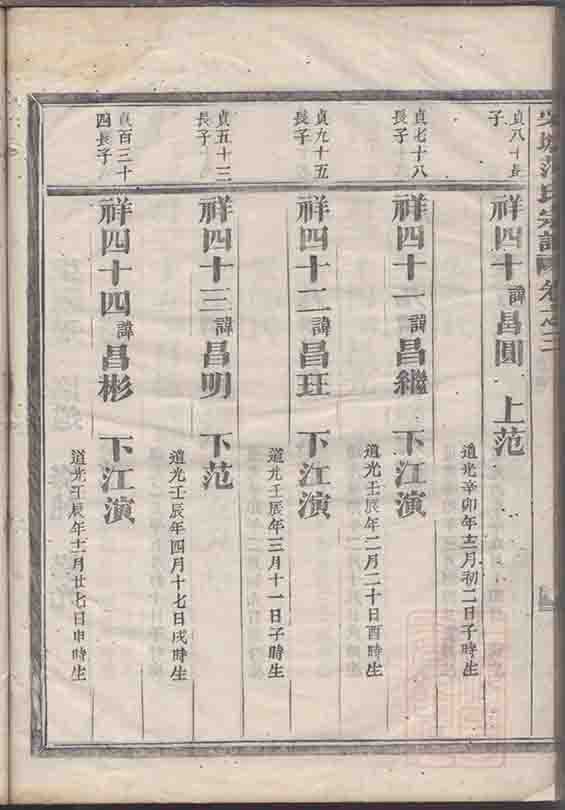 范氏宗譜 卷之二
貞八十
子
祥四十 諱昌圓 上范
道光辛卯年十二月初二日子時生
貞七十八
長子
祥四十一 諱昌繼 下江演
道光壬辰年二月二十日酉時生
貞九十五
長子
祥四十二 諱昌玨 下江演
道光壬辰年三月十一日子時生
貞五十三
長子
祥四十三 諱昌明 下范
道光壬辰年四月十七日戌時生
貞百二十
四長子
祥四十四 諱昌彬 下江演
道光壬辰年十二月廿七日申時生